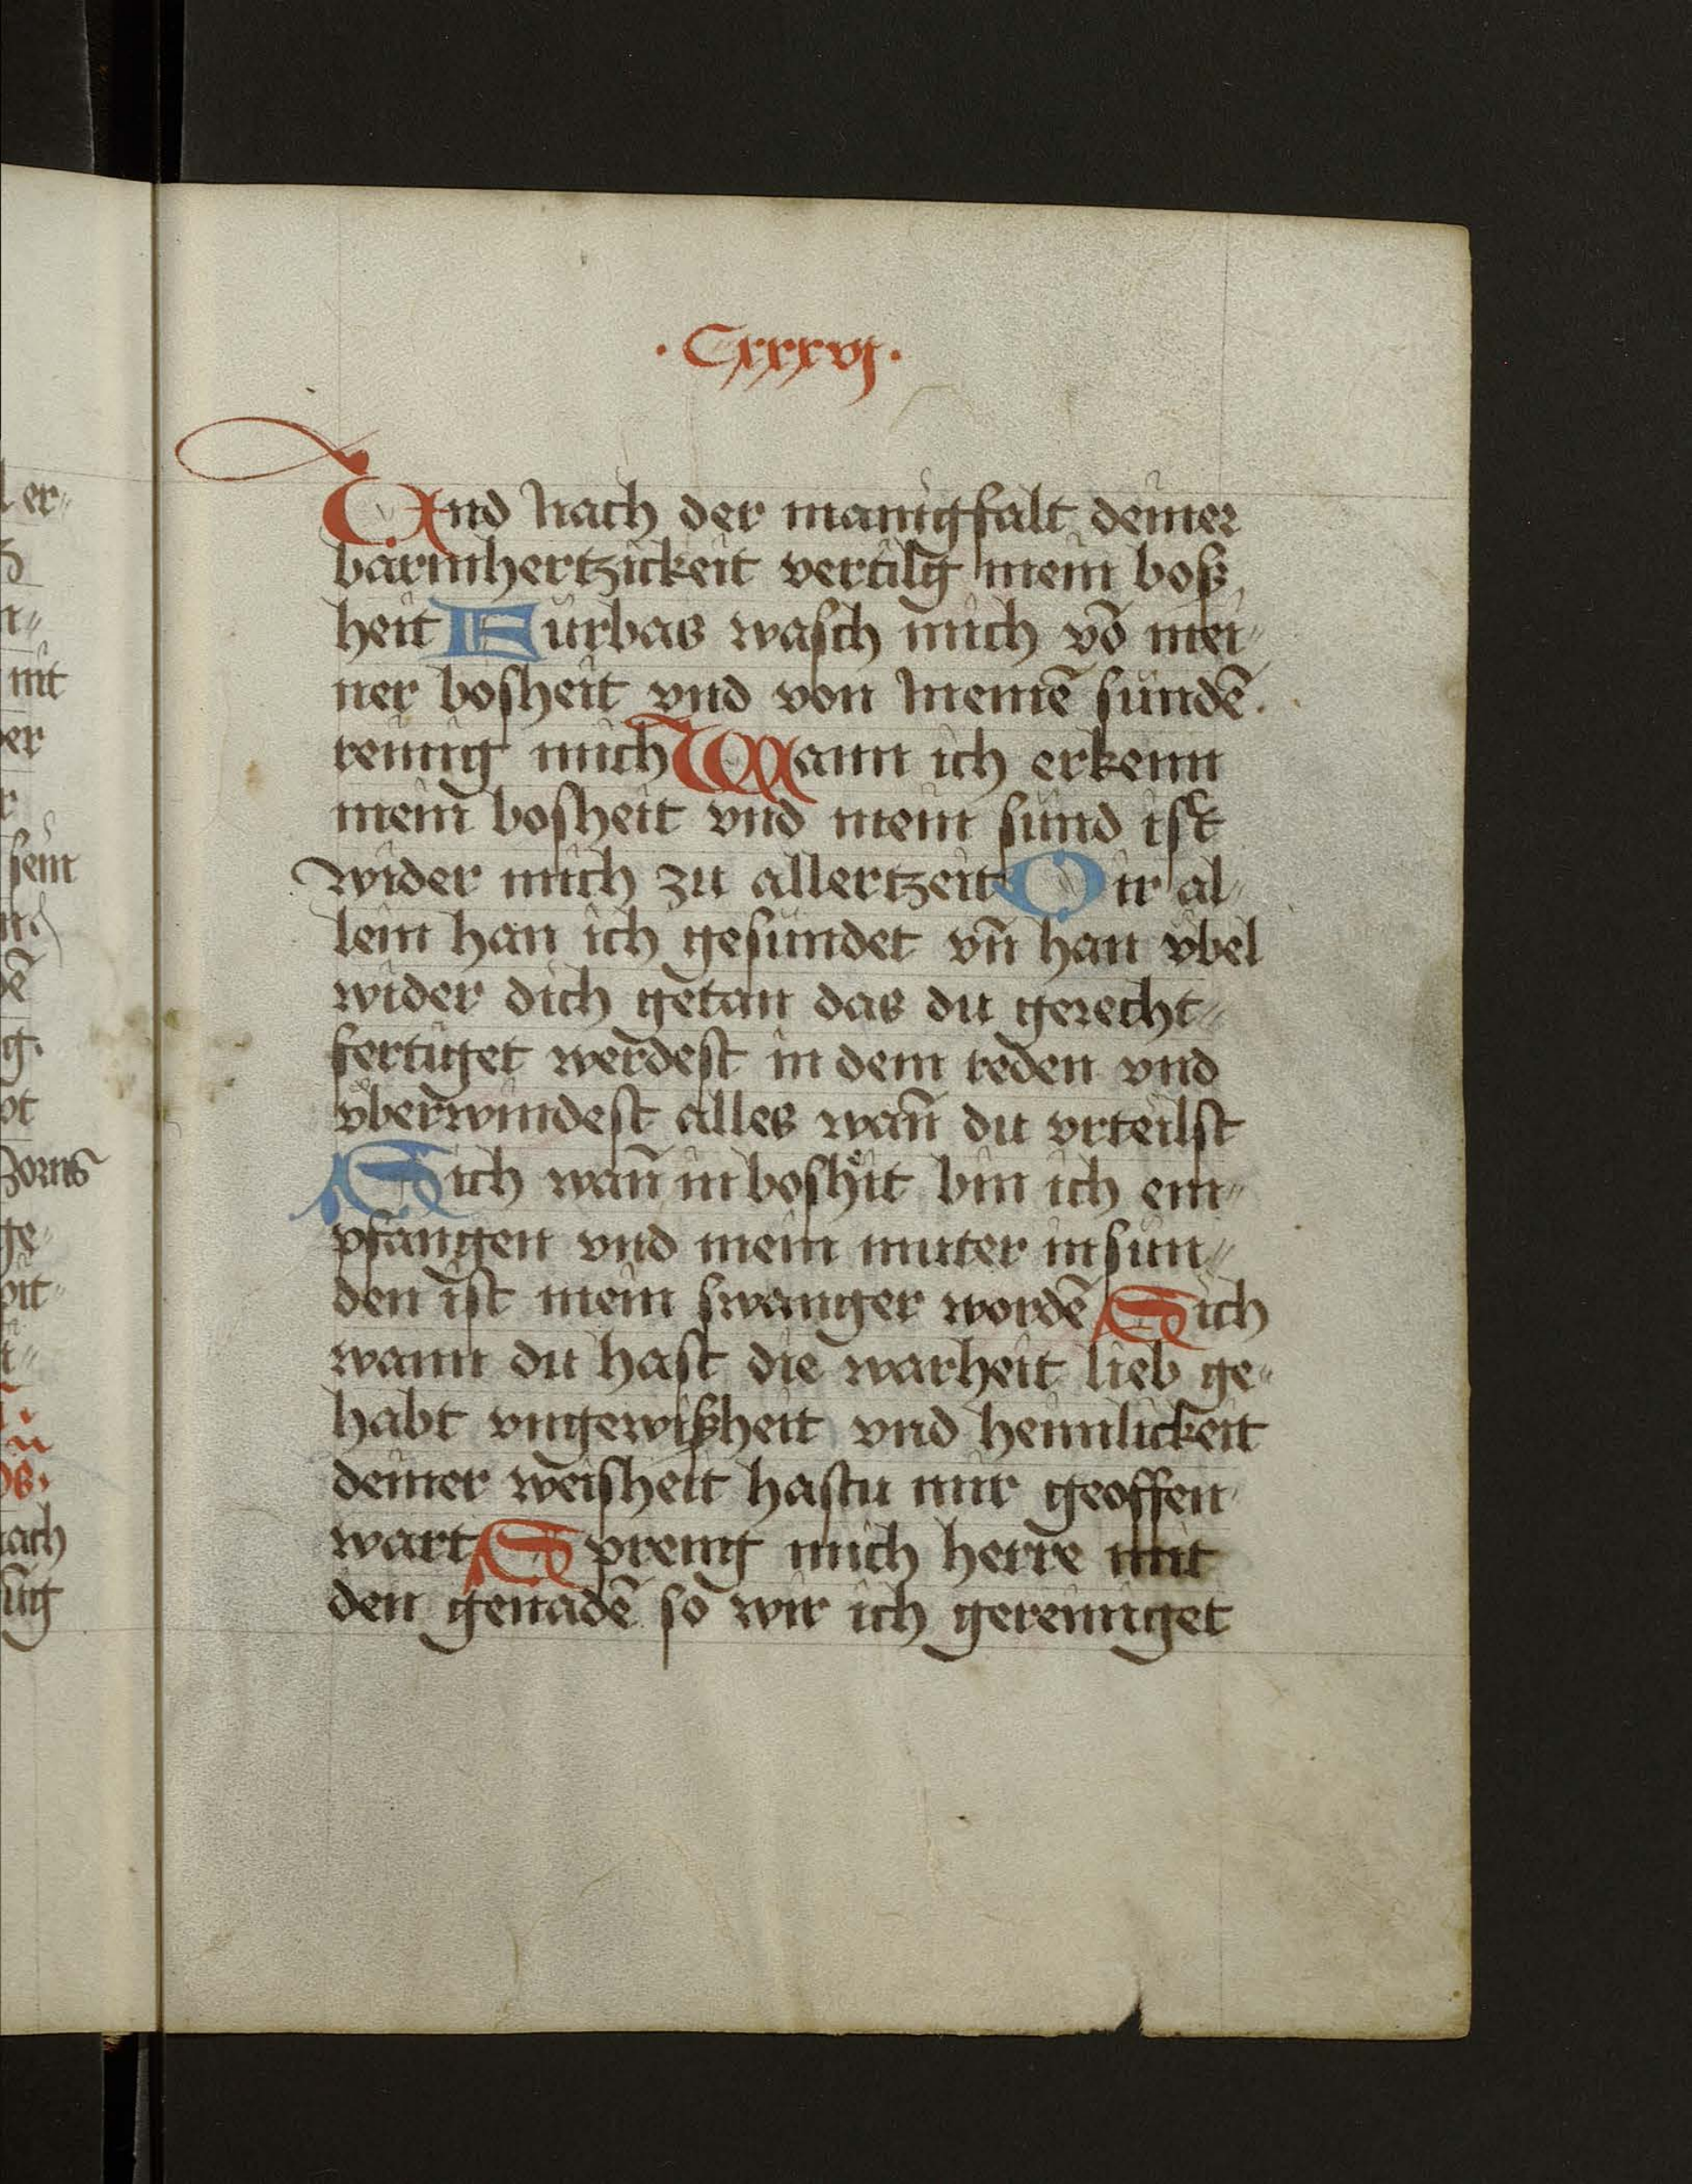 · Cxxxvj ·
Vnd nach der manigfalt deiner
barmhertzickeit vertilg mein bosz
heit Furbas wasch mich vō mei⸗
ner bosheit vnd von meinē sündē.
reinig mich Wann ich erkenn
mein bosheit vnd mein sünd ist
wider mich zu allertzeit Dir al⸗
lein han ich gesündet vn̄ han vbel
wider dich getan das du gerecht⸗
fertiget werdest in dem reden vnd
vberwindest alles wan̄ du vrteilst
Sich wan̄ in boshͤit bin ich em⸗
pfangen vnd mein muter in sün⸗
den ist mein swanger wordē Sich
wann du hast die warheit lieb ge⸗
habt vngewiszheit vnd heimlickeit
deiner weisheit hastu mir geoffen⸗
wart Spreng mich herre mit
den genadē so wir ich gereiniget